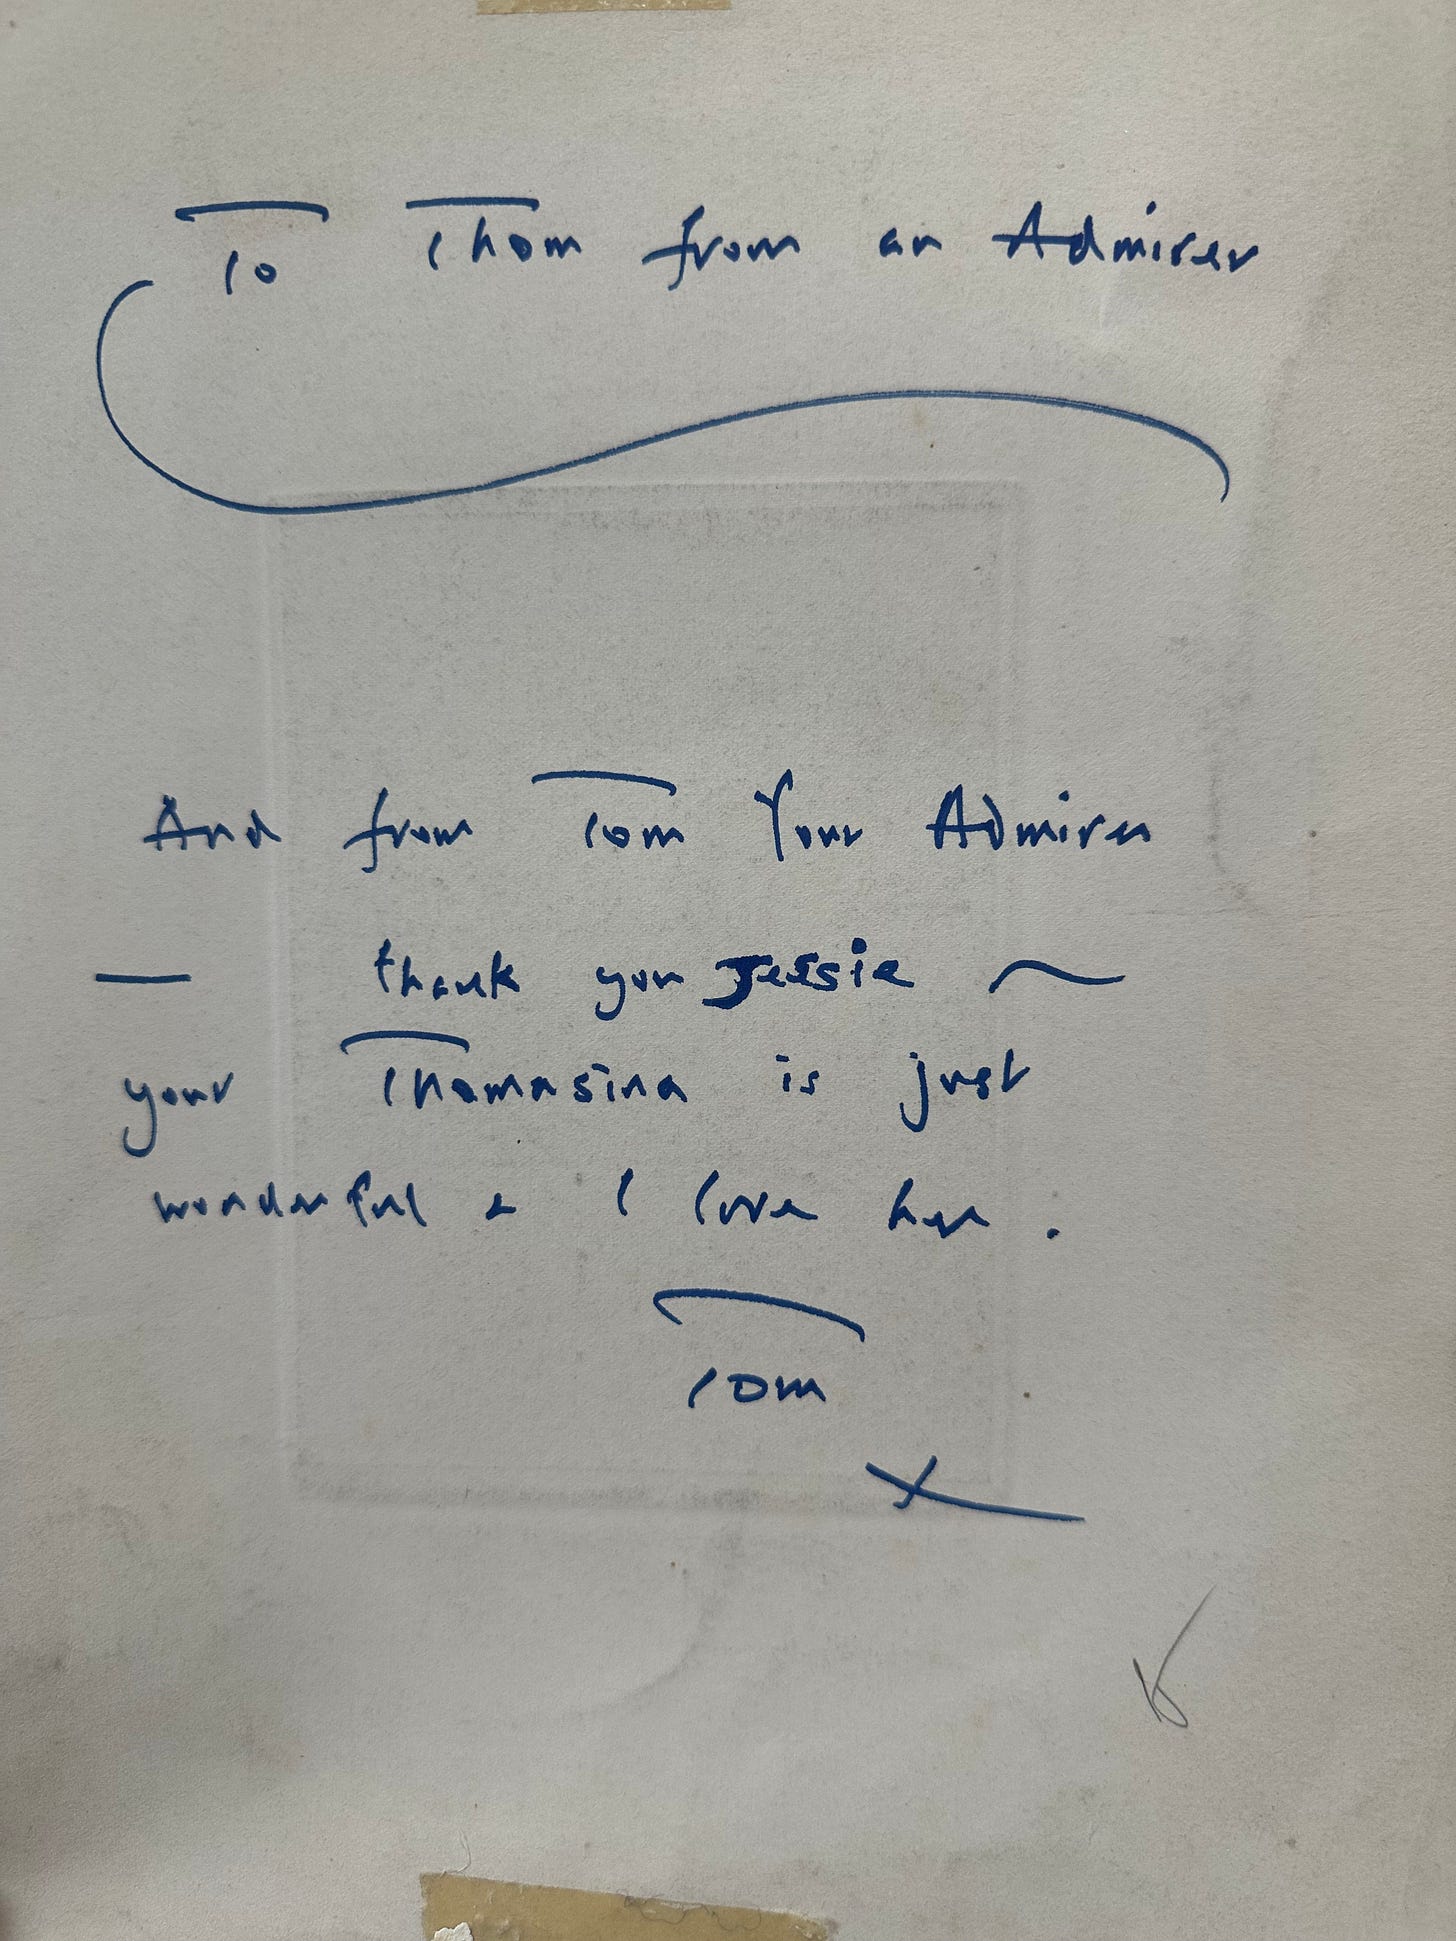 To Thom from an Admirer
And from Tom Your Admirer
— thank you Jessie ~
your Thomasina is just
wonderful & I love her.
Tom
x